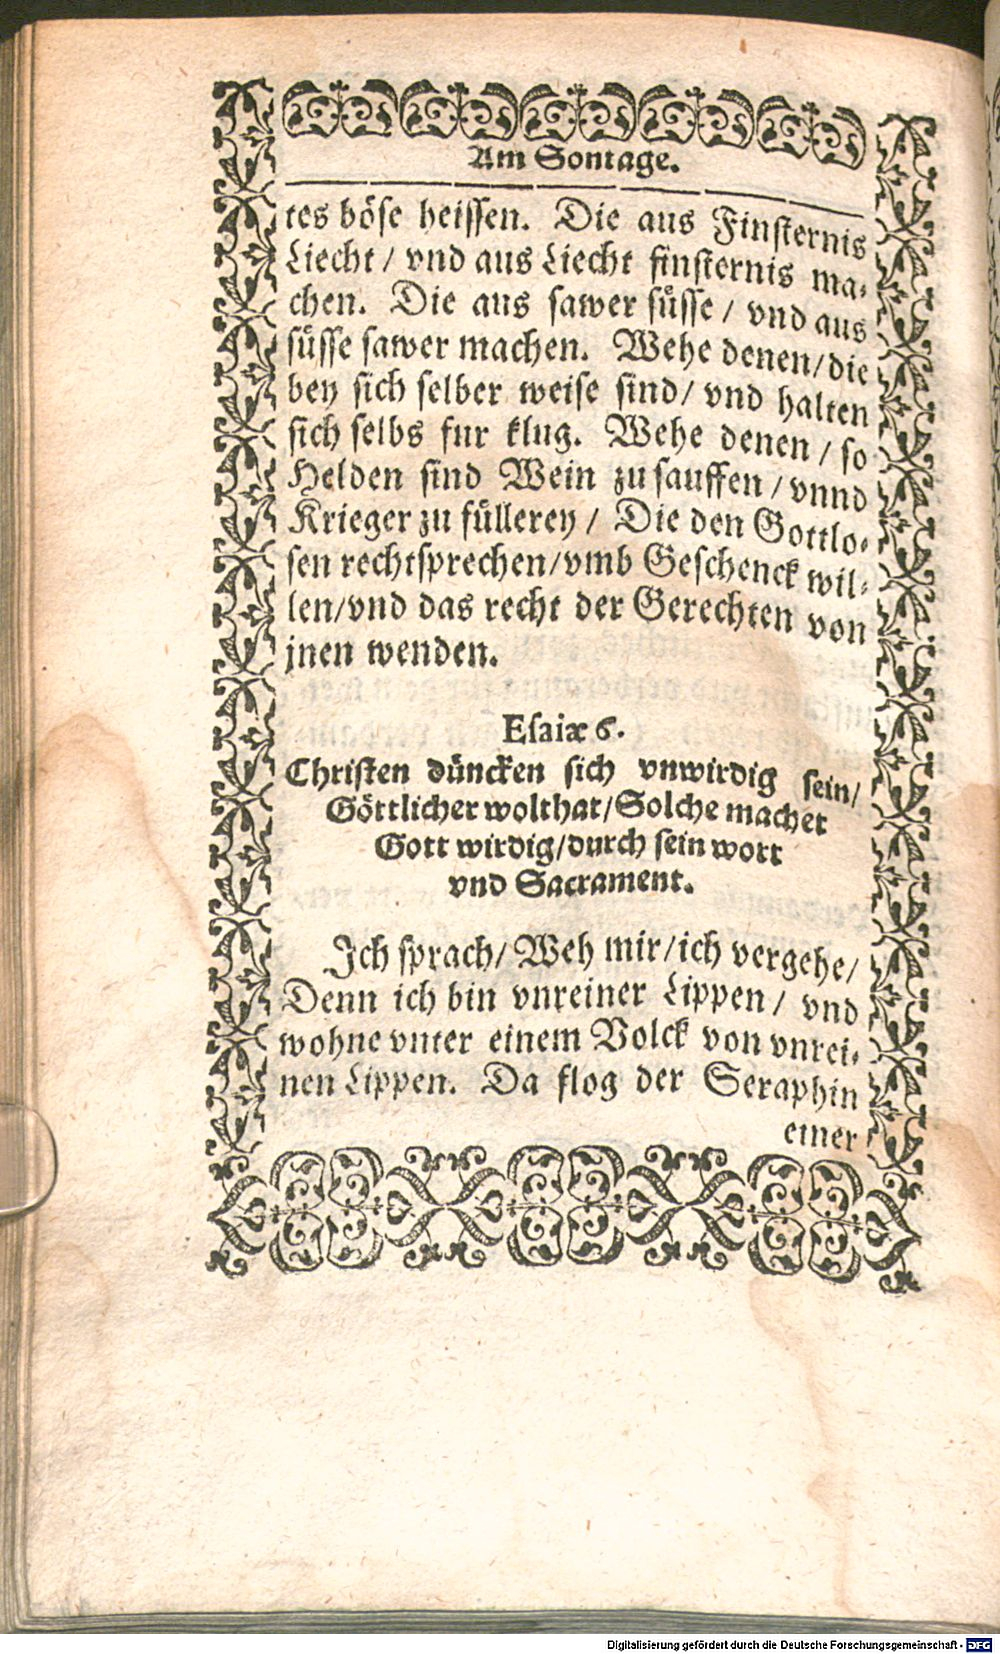 Am Sontage.
tes böse heissen. Die aus Finsternis
Liecht / vnd aus Liecht finsternis ma-
chen. Die aus sawer süsse / vnd aus
süsse sawer machen. Wehe denen / die
bey sich selber weise sind / vnd halten
sich selbs fur klug. Wehe denen / so
Helden sind Wein zu sauffen / vnnd
Krieger zu füllerey / Die den Gottlo-
sen rechtsprechen / vmb Geschenck wil-
len / vnd das recht der Gerechten von
jnen wenden.
Esaiæ 6.
Christen düncken sich vnwirdig sein /
Göttlicher wolthat / Solche machet
Gott wirdig / durch sein wort
vnd Sacrament.
Ich sprach / Weh mir / ich vergehe /
Denn ich bin vnreiner Lippen / vnd
wohne vnter einem Volck von vnrei-
nen Lippen. Da flog der Seraphin
einer
Digitalisierung gefördert durch die Deutsche Forschungsgemeinschaft - DFG